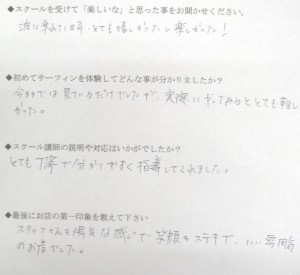 ◆スクールを受けて「楽しいな」と思った事をお聞かせください。
波に乗れた時、とても嬉しかったし楽しかった！
◆初めてサーフィンを体験してどんな事が分かりましたか？
今までは見ているだけでしたが、実際にやってみるととても難し
かった。
◆スクール講師の説明や対応はいかがでしたか？
とても丁寧で分かりやすく指導してくれました。
◆最後にお店の第一印象を教えて下さい
スタッフさんも陽気な感じで笑顔もステキで、いい雰囲気
のお店でした。